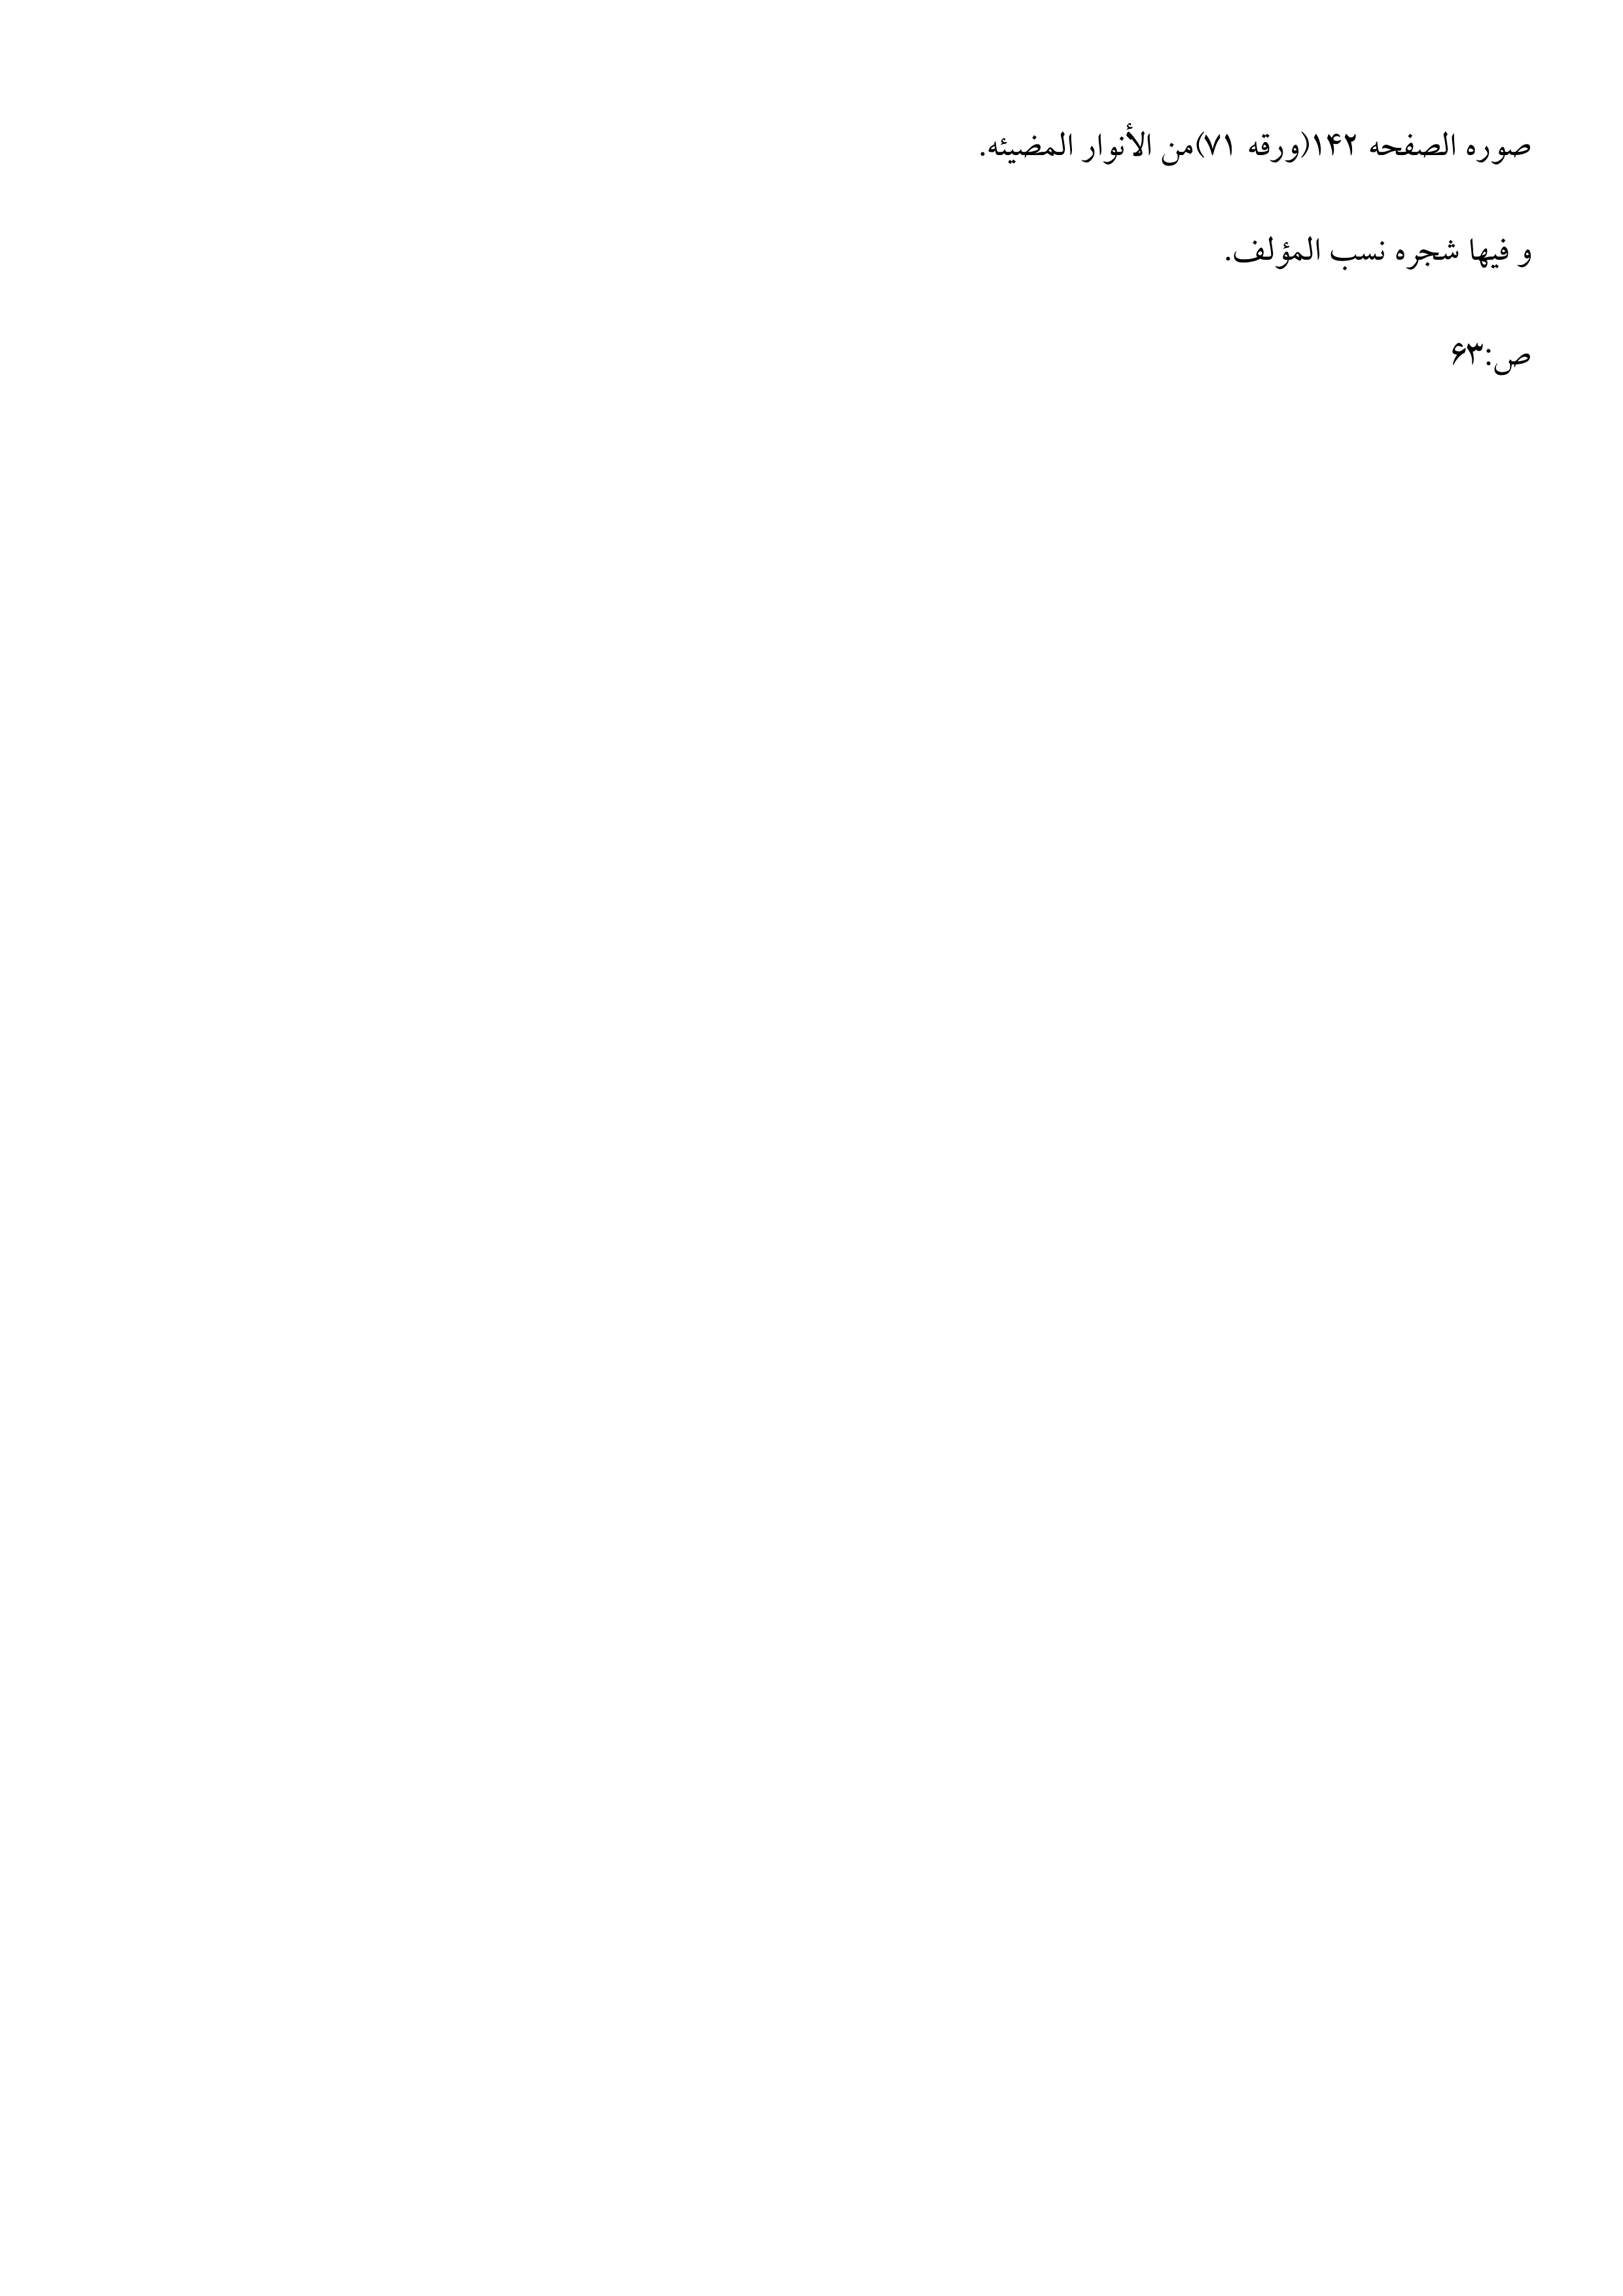 صوره الصفحه ۱۴۲(ورقه ۷۱)من الأنوار المضیئه.
و فیها شجره نسب المؤلف.
ص:۶۳